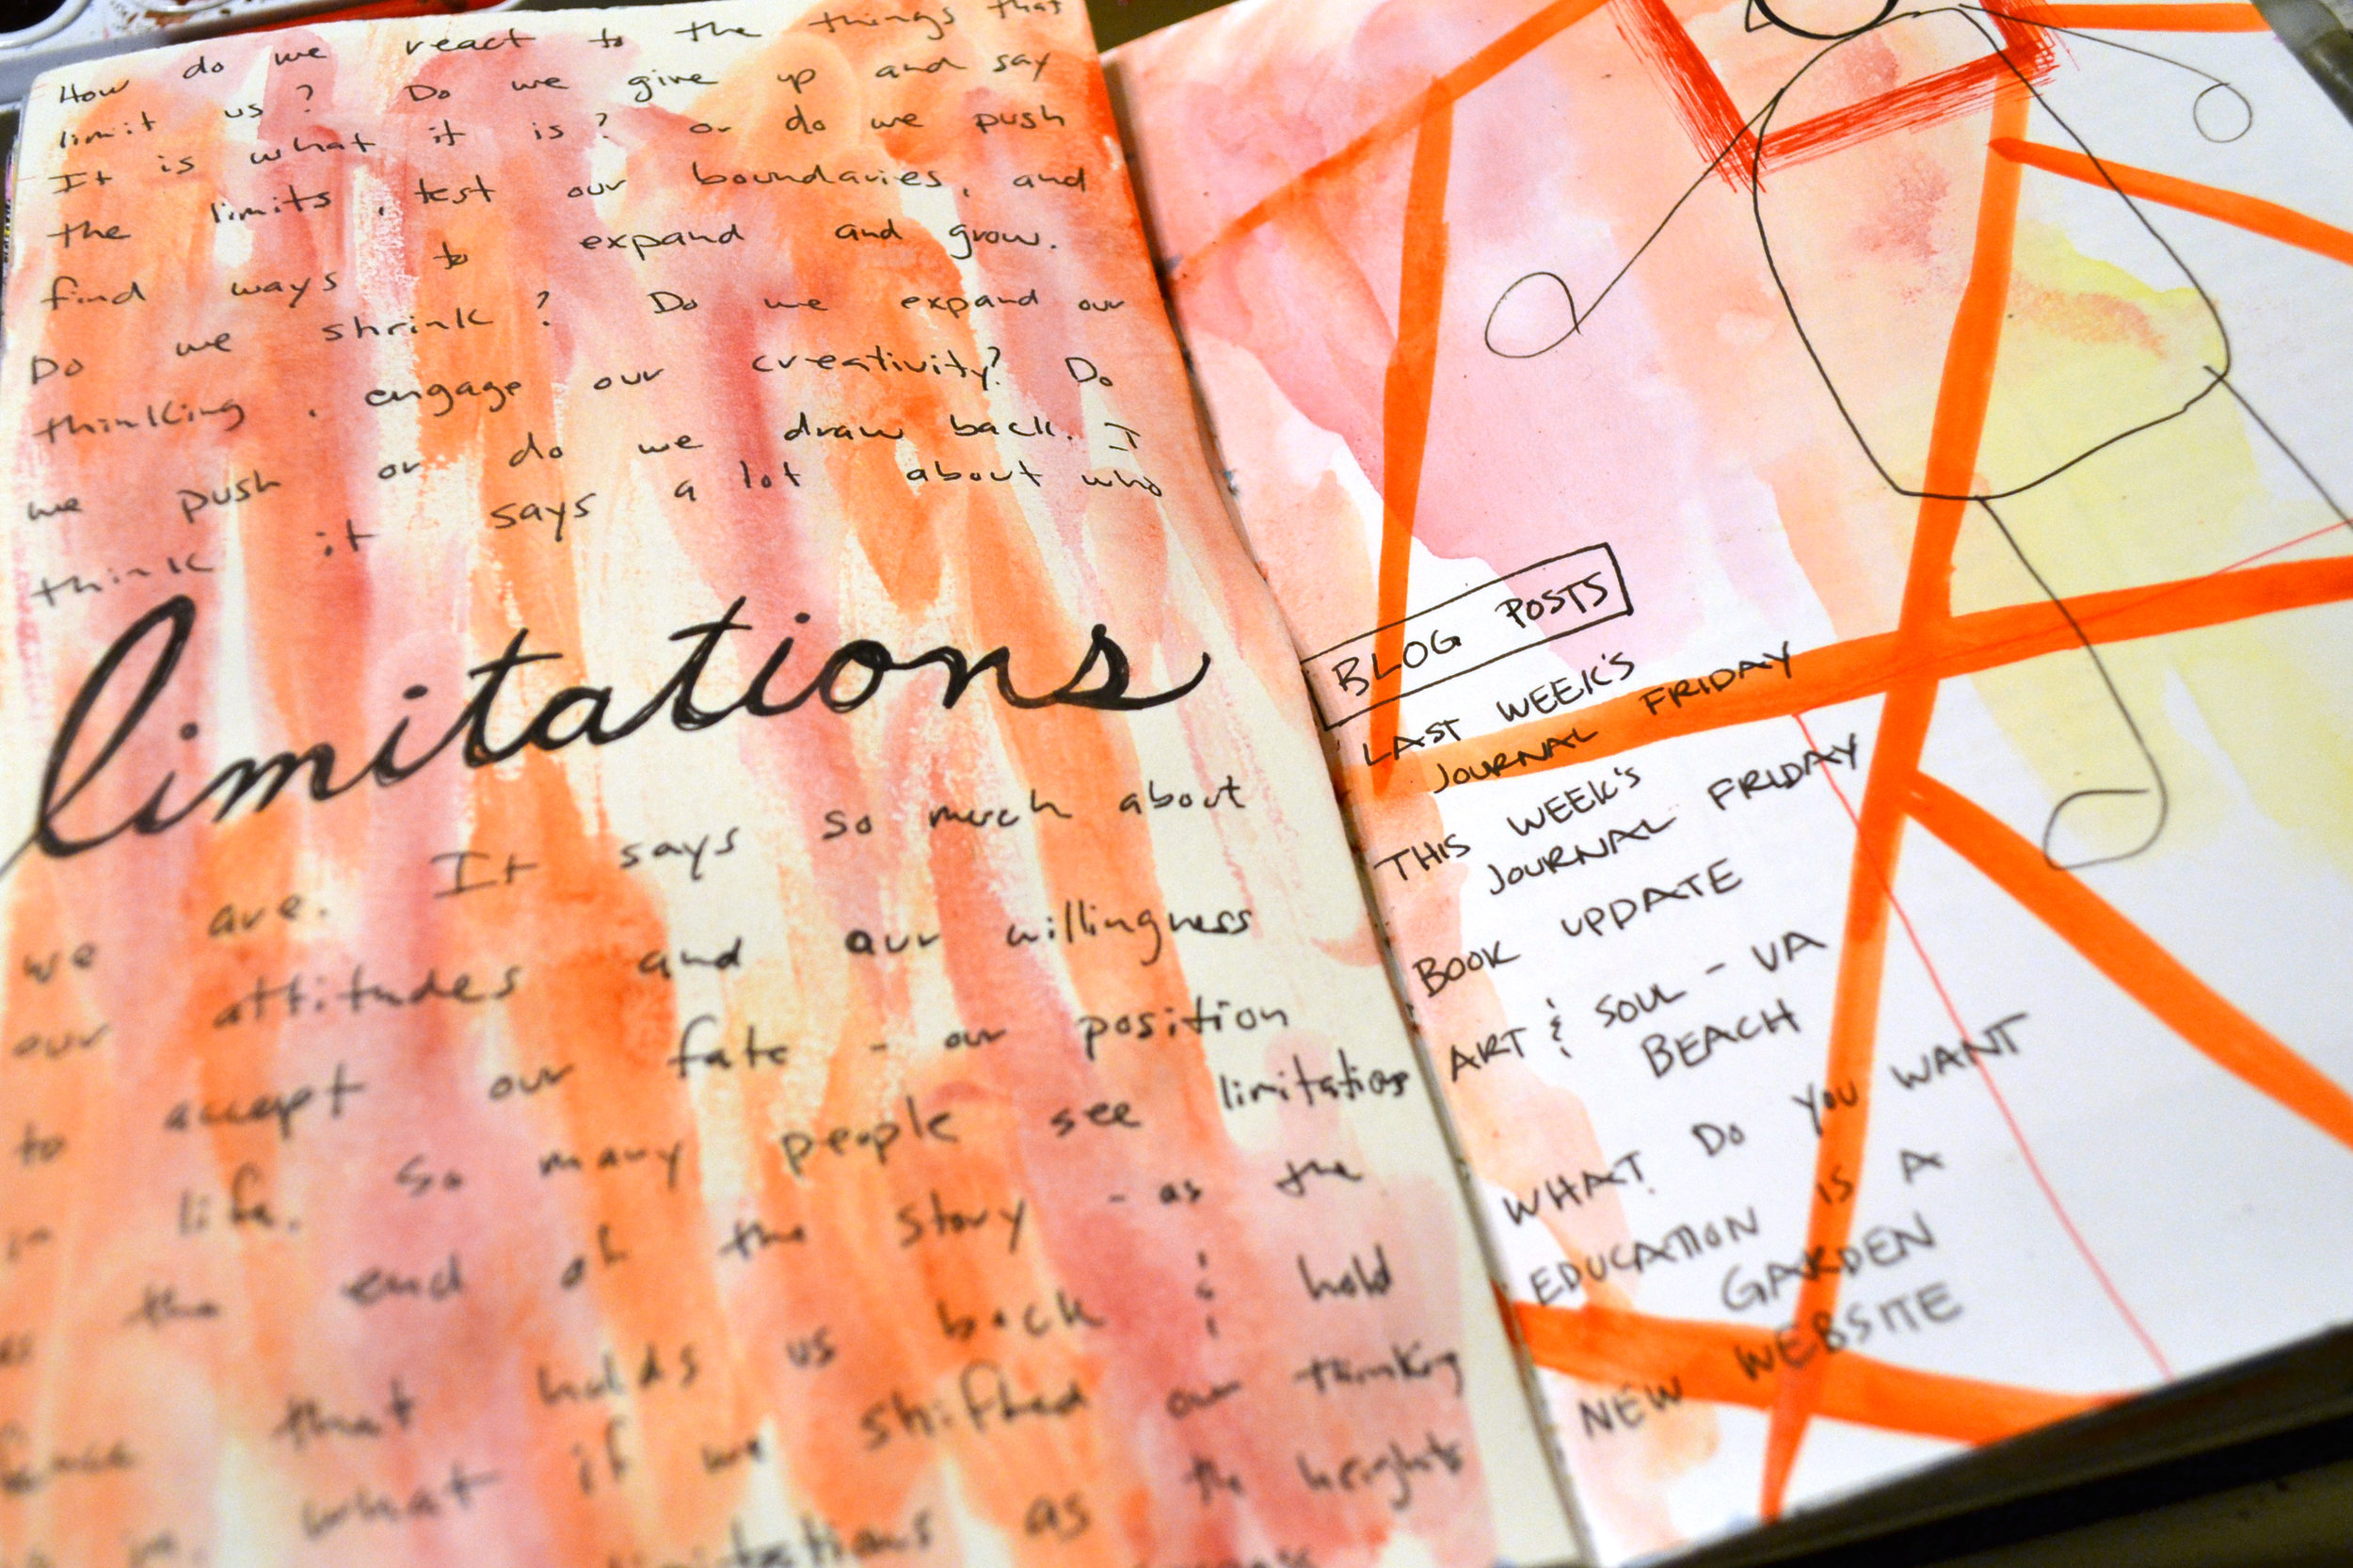 How do we react to the things that
limit us? Do we give up and say
It is what it is? or do we push
the limits, test our boundaries, and
find ways to expand and grow.
Do we shrink? Do we expand our
thinking, engage our creativity? Do
we push or do we draw back. I
think it says a lot about who
limitations
we are. It says so much about
our attitudes and our willingness
to accept our fate - our position
in life. So many people see limitations
as the end of the story - as the
fence that holds us back & hold
in. what if we shifted our thinking
limitations as the heights
BLOG POSTS
LAST WEEK'S
JOURNAL FRIDAY
THIS WEEK'S
JOURNAL FRIDAY
BOOK UPDATE
ART & SOUL - VA
BEACH
WHAT DO YOU WANT
EDUCATION IS A
GARDEN
NEW WEBSITE